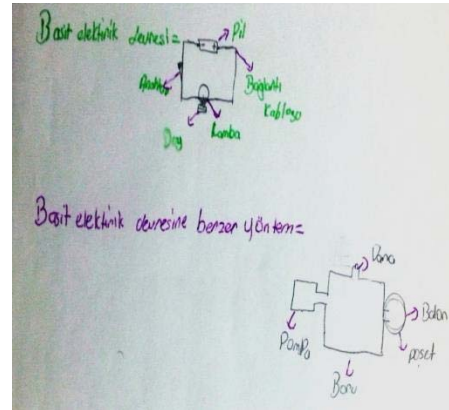 Basit elektirik devresi=
Pil
Anahtar
Bağlantı
Kablosu
Duy
Lamba
Basit elektirik devresine benzer yöntem=
Vana
Balon
Pompa
poşet
Boru